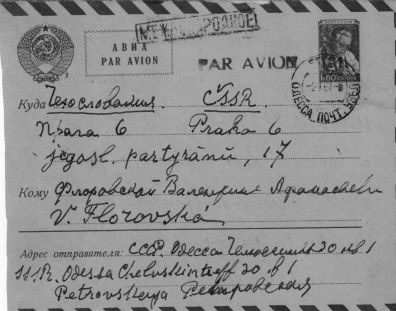 МЕЖДУНАРОДНОЕ
АВИА
PAR AVION
PAR AVION
60
ОДЕССА ПОЧТ.
Куда Чехословакия. ČSSR.
Прага 6 Praha 6
jugosl. partyzánů, 17
Кому Флоровской Валентине Афанасьевне
V. Florovská
Адрес отправителя: СССР. Одесса Челюскинцев 20 кв 1
SSSR. Odessa 20 в 1
Petrovskaya Петровская